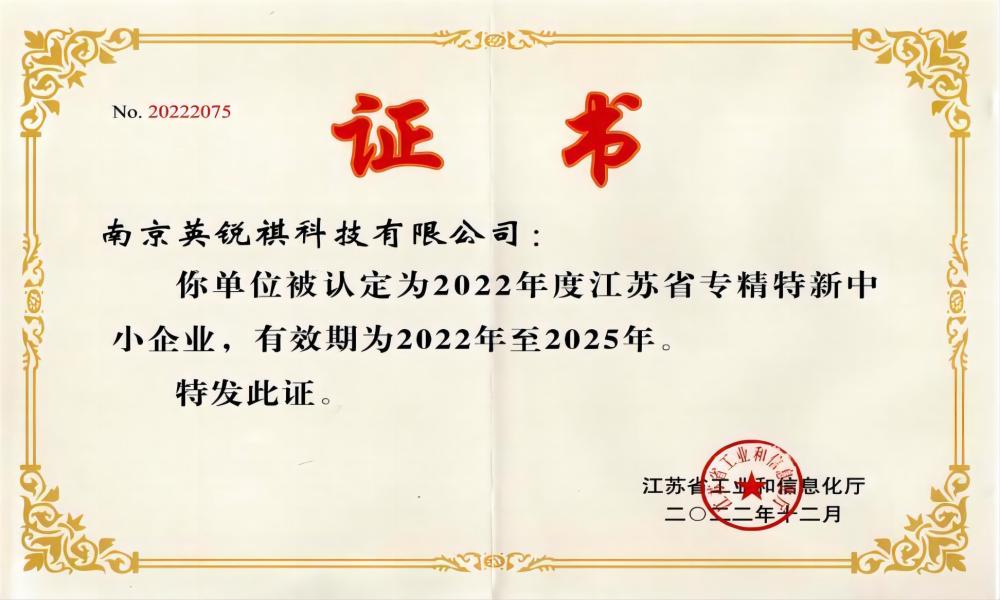 No. 20222075
证 书
南京英锐祺科技有限公司：
你单位被认定为2022年度江苏省专精特新中
小企业，有效期为2022年至2025年。
特发此证。
江苏省工业和信息化厅
江苏省工业和信息化厅
二〇二二年十二月